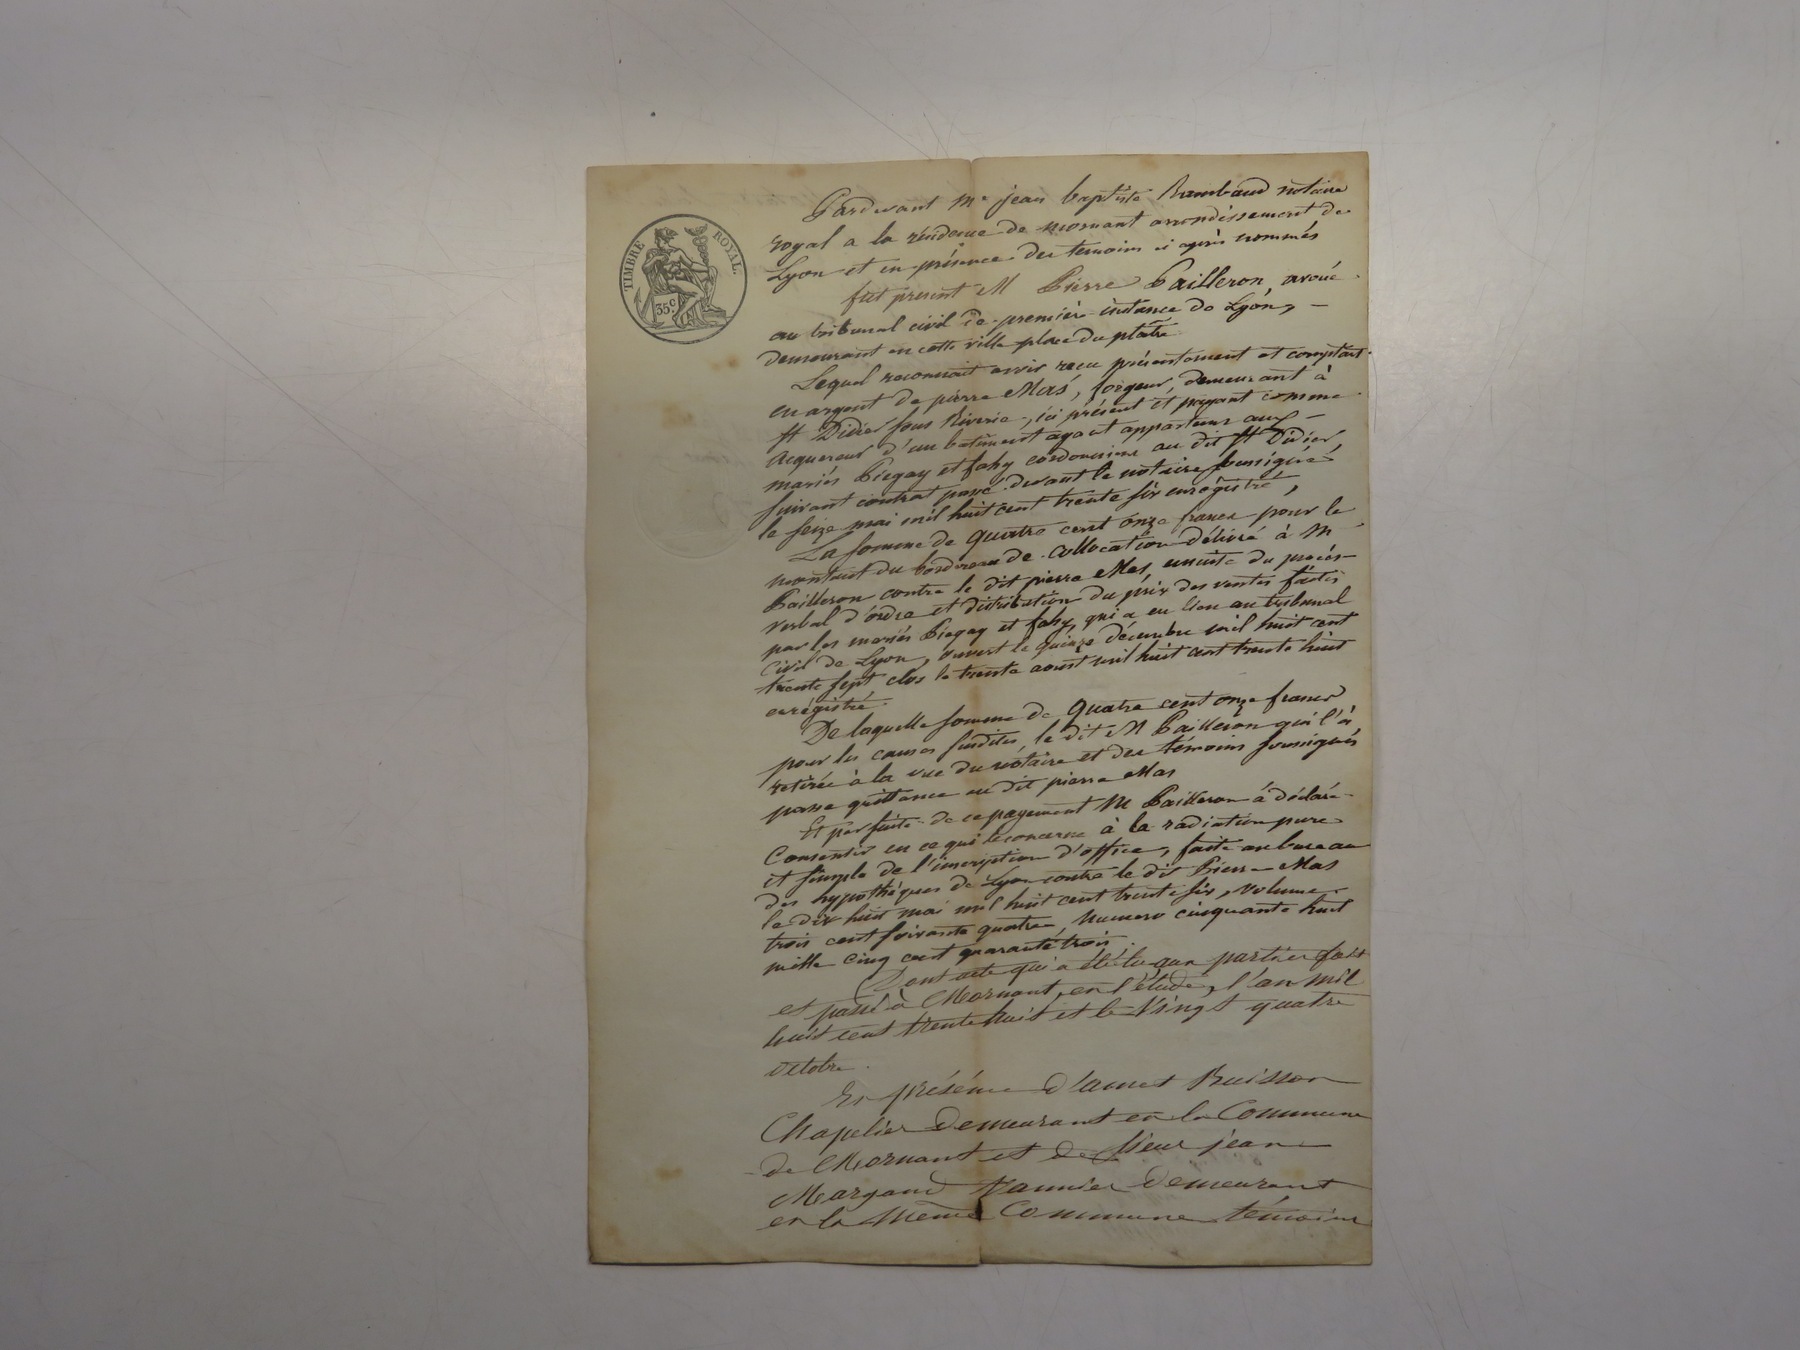 TIMBRE ROYAL.
35 c
Pardevant Me jean baptiste Rambaud notaire
royal a la residence de mornant arrondissement de
Lyon et en présence des temoins ci après nommés
fut present M Pierre Pailleron, avoué
au tribunal civil de première instance de Lyon, –
demeurant en cette ville place du platre
Lequel reconnait avoir recu présentement et comptant
en argent de pierre Mas, forgeur, demeurant à
st Didier sous Riverie, ici présent et payant comme
acquereur d'un batiment ayant appartenu aux –
mariés Piegay et fahy cordonnier au dit st Didier,
suivant contrat passé devant le notaire soussigné
le seize mai mil huit cent trente six enregistré,
La somme de quatre cent onze francs pour le
montant du bordereau de collocation délivré à M
Pailleron contre le dit pierre Mas, ensuite du procès–
verbal d'ordre et distribution du prix des ventes faites
par les mariés Piegay et fahy, qui a eu lieu au tribunal
Civil de Lyon, ouvert le quinze décembre mil huit cent
trente sept clos le trente aout mil huit cent trente huit
enrégistré.
De laquelle somme de quatre cent onze francs
pour les causes susdites, le dit M Pailleron qui l'a
retirée à la vue du notaire et des témoins soussignés
passe quittance au dit pierre Mas
Et par suite de ce payement M Pailleron à déclaré
Consentir en ce qui le concerne à la radiation pure
et simple de l'inscription d'office, faite au bureau
des hypothèques de Lyon contre le dit Pierre Mas
le dix huit mai mil huit cent trente six, volume
trois cent soixante quatre, numero cinquante huit
mille cinq cent quarante trois.
Dont acte qui a été lu aux parties fait
et passé à Mornant, en l'étude, l'an mil
huit cent trente huit et le vingt quatre
octobre.
En présence d'laurent Buisson
Chapelier demeurant en la Commune
de Mornant et de sieur jean
Margand Vannier demeurant
en la même Commune témoins